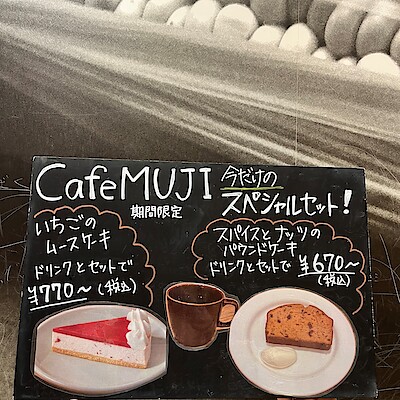 CafeMUJI 今だけの
期間限定 スペシャルセット!
いちごの
ムースケーキ
ドリンクとセットで
¥770～(税込)
スパイスとナッツの
パウンドケーキ
ドリンクとセットで ¥670～
(税込)